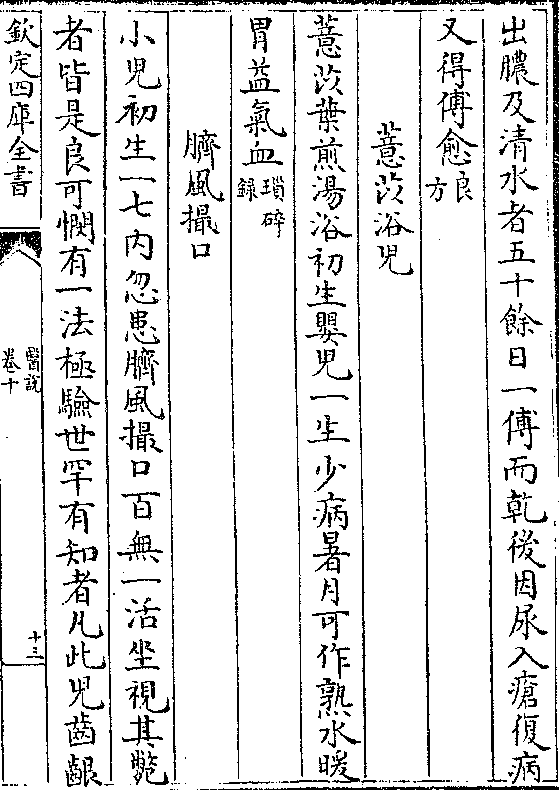 出膿及清水者五十餘日一傅而乾後因尿入瘡復病
又得傅愈良方
薏苡浴兒
薏苡葉煎湯浴初生嬰兒一生少病暑月可作熟水暖
胃益氣血瑣碎錄
臍風撮口
小兒初生一七内忽患臍風撮口百無一活坐視其斃
者皆是良可憫有一法極驗世罕有知者凡此兒齒齦
欽定四庫全書
醫說
卷十
十三